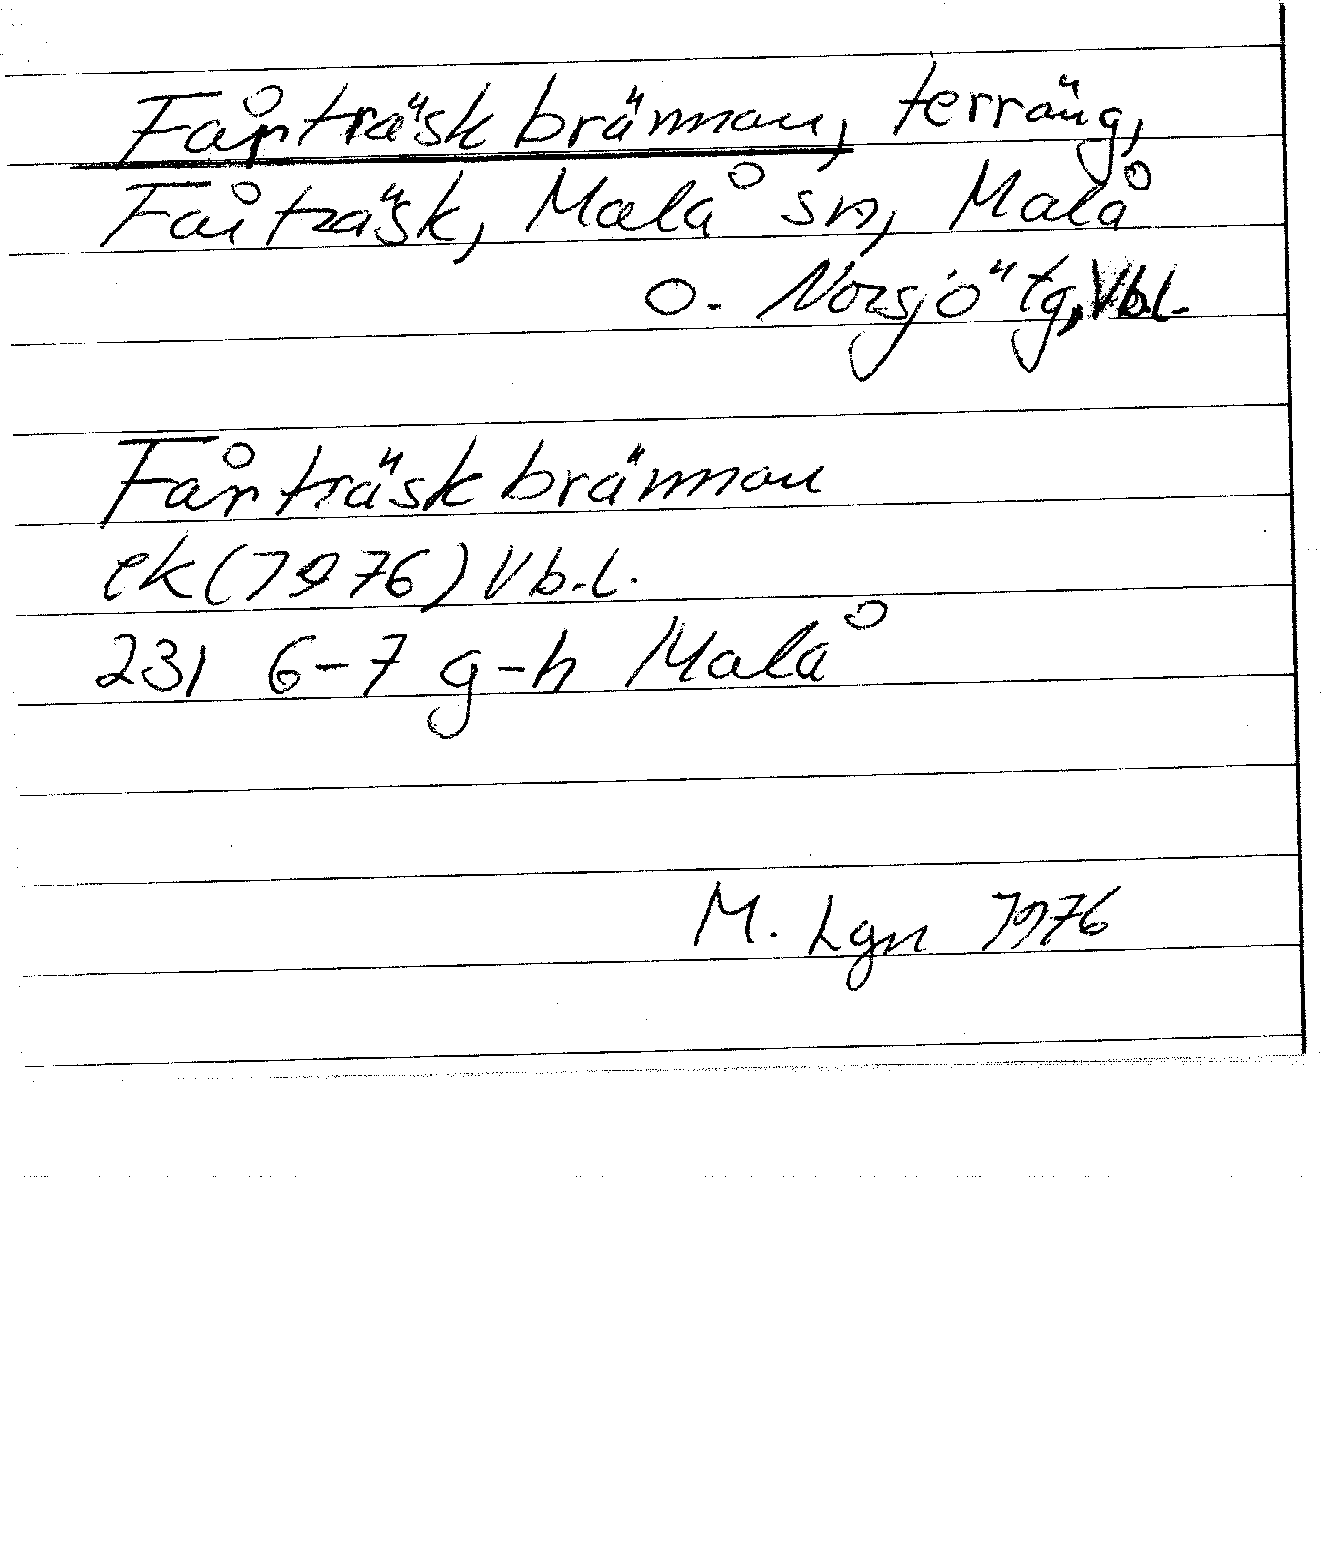 Fårträskbrännan, terräng,
Fårträsk, Malå sn, Malå
o. Norsjö tg, Vb.l.
Fårträskbrännan
ek (1976) Vb.l.
231 6-7 g-h Malå
M. Lgn 1976